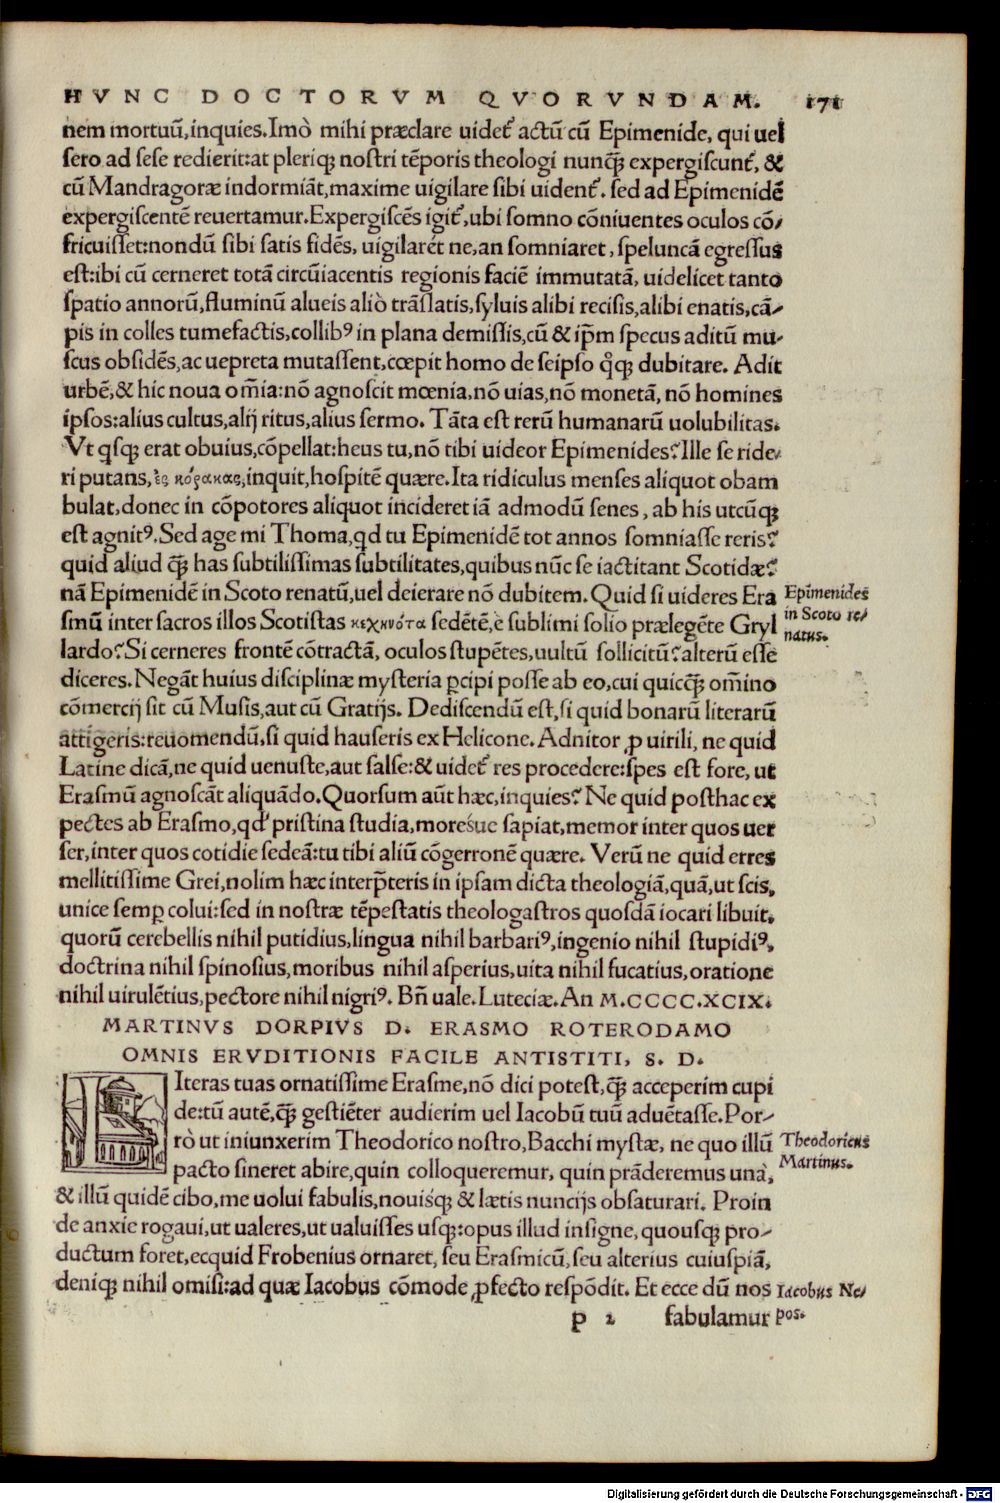 HVNC DOCTORVM QVORVNDAM. 171
nem mortuū, inquies. Imò mihi præclare uidet᷑ actū cū Epimenide, qui uel
ſero ad ſeſe redierit: at pleriqꝫ noſtri tēporis theologi nunqꝫ̄ expergiſcunt᷑, &
cū Mandragoræ indormiāt, maxime uigilare ſibi uident᷑. ſed ad Epimenidē
expergiſcentē reuertamur. Expergiſcēs igit᷑, ubi ſomno cōniuentes oculos cō-
fricuiſſet: nondū ſibi ſatis fidēs, uigilarét ne, an ſomniaret, ſpeluncā egreſſus
eſt: ibi cū cerneret totā circūiacentis regionis faciē immutatā, uidelicet tanto
ſpatio annorū, fluminū alueis aliò trāſlatis, ſyluis alibi reciſis, alibi enatis, cā-
pis in colles tumefactis, collibꝰ in plana demiſſis, cū & ip̄m ſpecus aditū mu-
ſcus obſidēs, ac uepreta mutaſſent, cœpit homo de ſeipſo qͥqꝫ dubitare. Adit
urbē, & hic noua om̄ia: nō agnoſcit mœnia, nō uias, nō monetā, nō homines
ipſos: alius cultus, alij ritus, alius ſermo. Tāta eſt rerū humanarū uolubilitas.
Vt qſqꝫ erat obuius, cōpellat: heus tu, nō tibi uideor Epimenides? Ille ſe ride-
ri putans, ἐς κόρακας, inquit, hoſpitē quære. Ita ridiculus menſes aliquot obam
bulat, donec in cōpotores aliquot incideret iā admodū ſenes, ab his utcūqꝫ
eſt agnitꝰ. Sed age mi Thoma, qd tu Epimenidē tot annos ſomniaſſe reris?
quid aliud qꝫ̄ has ſubtiliſſimas ſubtilitates, quibus nūc ſe iactitant Scotidæ?
nā Epimenidē in Scoto renatū, uel deierare nō dubitem. Quid ſi uideres Era
Epimenides
in Scoto re-
natus.
ſmū inter ſacros illos Scotiſtas κεχηνότα ſedētē, è ſublimi ſolio prælegēte Gryl
lardo? Si cerneres frontē cōtractā, oculos ſtupētes, uultū ſollicitū? alterū eſſe
diceres. Negāt huius diſciplinæ myſteria ꝑcipi poſſe ab eo, cui quicqꝫ̄ om̄ino
cōmercij ſit cū Muſis, aut cū Gratijs. Dediſcendū eſt, ſi quid bonarū literarū
attigeris: reuomendū, ſi quid hauſeris ex Helicone. Adnitor ꝓ uirili, ne quid
Latine dicā, ne quid uenuſte, aut ſalſe: & uidet᷑ res procedere: ſpes eſt fore, ut
Eraſmū agnoſcāt aliquādo. Quorſum aūt hæc, inquies? Ne quid poſthac ex
pectes ab Eraſmo, qd' priſtina ſtudia, moresúe ſapiat, memor inter quos uer
ſer, inter quos cotidie ſedeā: tu tibi aliū cōgerronē quære. Verū ne quid erres
mellitiſſime Grei, nolim hæc interp̄teris in ipſam dicta theologiā, quā, ut ſcis,
unice ſemꝑ colui: ſed in noſtræ tēpeſtatis theologaſtros quoſdā iocari libuit,
quorū cerebellis nihil putidius, lingua nihil barbariꝰ, ingenio nihil ſtupidiꝰ,
doctrina nihil ſpinoſius, moribus nihil aſperius, uita nihil fucatius, oratione
nihil uirulētius, pectore nihil nigriꝰ. Bn̄ uale. Luteciæ. An M.CCCC.XCIX.
MARTINVS DORPIVS D. ERASMO ROTERODAMO
OMNIS ERVDITIONIS FACILE ANTISTITI, S. D.
Iteras tuas ornatiſſime Eraſme, nō dici poteſt, qꝫ̄ acceperim cupi
de: tū autē, qꝫ̄ geſtiēter audierim uel Iacobū tuū aduētaſſe. Por-
rò ut iniunxerim Theodorico noſtro, Bacchi myſtæ, ne quo illū
Theodoricus
Martinus.
pacto ſineret abire, quin colloqueremur, quin prāderemus unà,
& illū quidē cibo, me uolui fabulis, nouisqꝫ & lætis nuncijs obſaturari. Proin
de anxie rogaui, ut ualeres, ut ualuiſſes uſqꝫ: opus illud inſigne, quouſqꝫ pro-
ductum foret, ecquid Frobenius ornaret, ſeu Eraſmicū, ſeu alterius cuiuſpiā,
deniqꝫ nihil omiſi: ad quæ Iacobus cōmode ꝓfecto reſpōdit. Et ecce dū nos
Iacobus Ne-
pos.
p 2 fabulamur
Digitalisierung gefördert durch die Deutsche Forschungsgemeinschaft - DFG